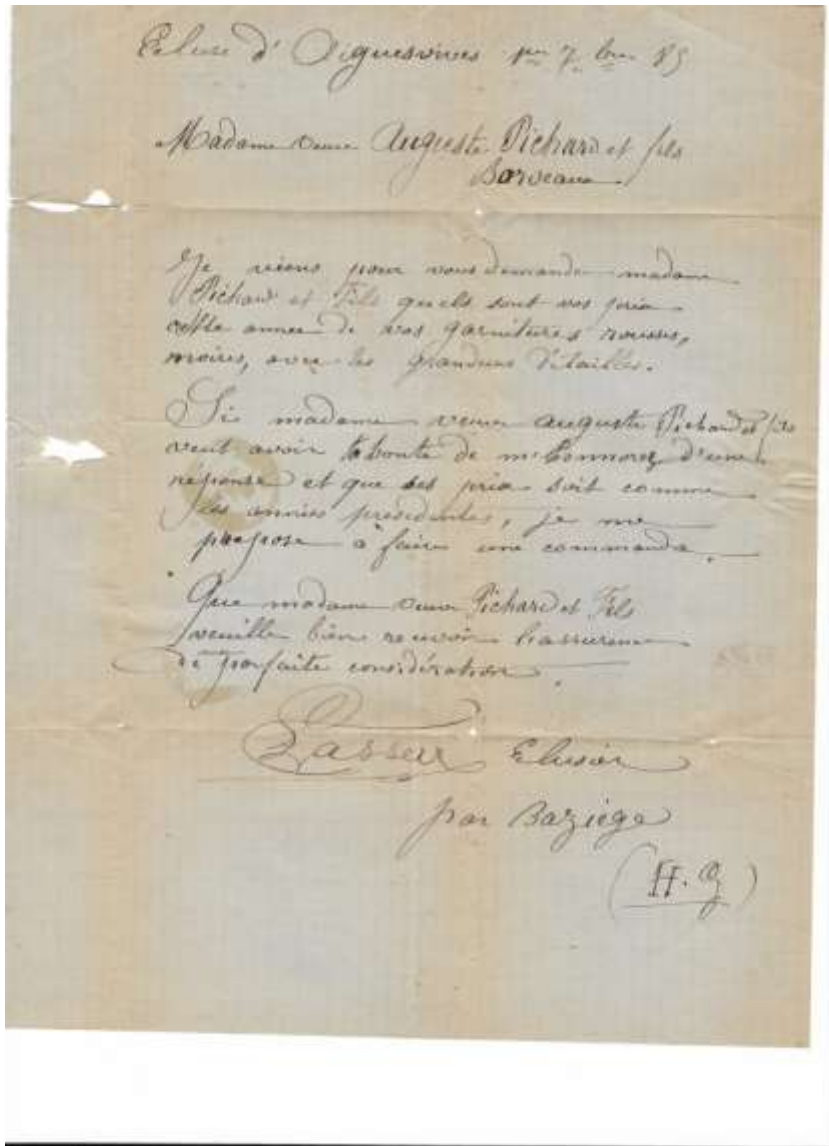 Ecluse d'Aiguesvives per 7 bre 85
Madame veuve Auguste Pichard et fils
Bordeaux
Je viens pour vous demande madame
Pichard et Fils quels sont vos prix
cette année de vos garnitures rousses,
noires, avec les grandeurs détailles.
Si madame veuve auguste Pichard et fils
veut avoir la bonté de m'honnorez d'une
réponse et que ses prix soit comme
les années présedentes, je me
propose à faire une commande.
Que madame veuve Pichard et Fils
veuille bien recevoir l'assurence
de parfaite considération.
Lasserre Elusier
par Baziège
(H. G)